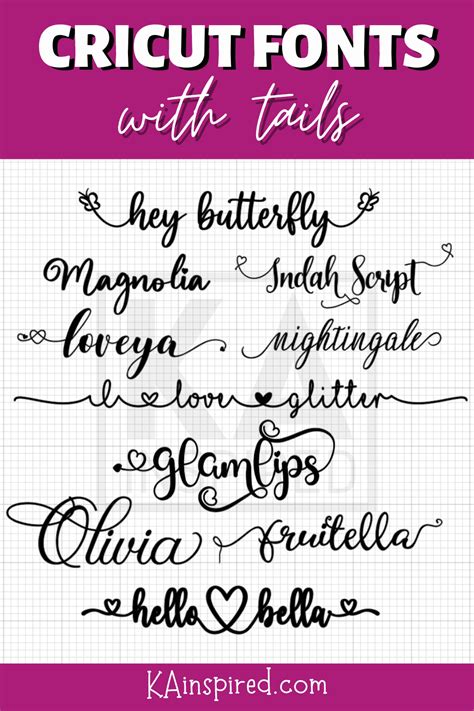 CRICUT FONTS
with tails
hey butterfly
Magnolia
Indah Script
loveya
nightingale
I love glitter
KA
glamlips
Olivia
fruitella
hello bella
KAinspired.com